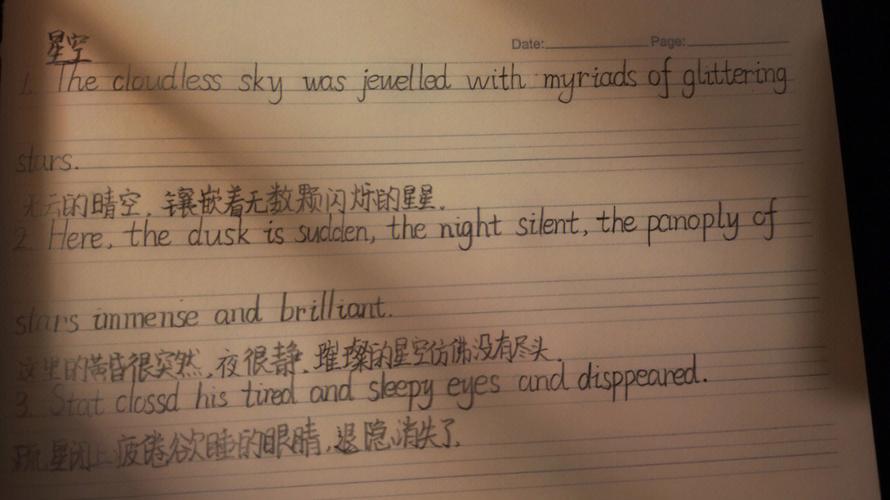 星空
Date: Page:
1. The cloudless sky was jewelled with myriads of glittering
stars.
无云的晴空，镶嵌着无数颗闪烁的星星.
2. Here, the dusk is sudden, the night silent, the panoply of
stars immense and brilliant.
这里的黄昏很突然，夜很静，璀璨的星空仿佛没有尽头.
3. Stat clossd his tired and sleepy eyes and disppeared.
星闭上疲倦欲睡的眼睛，退隐消失了.